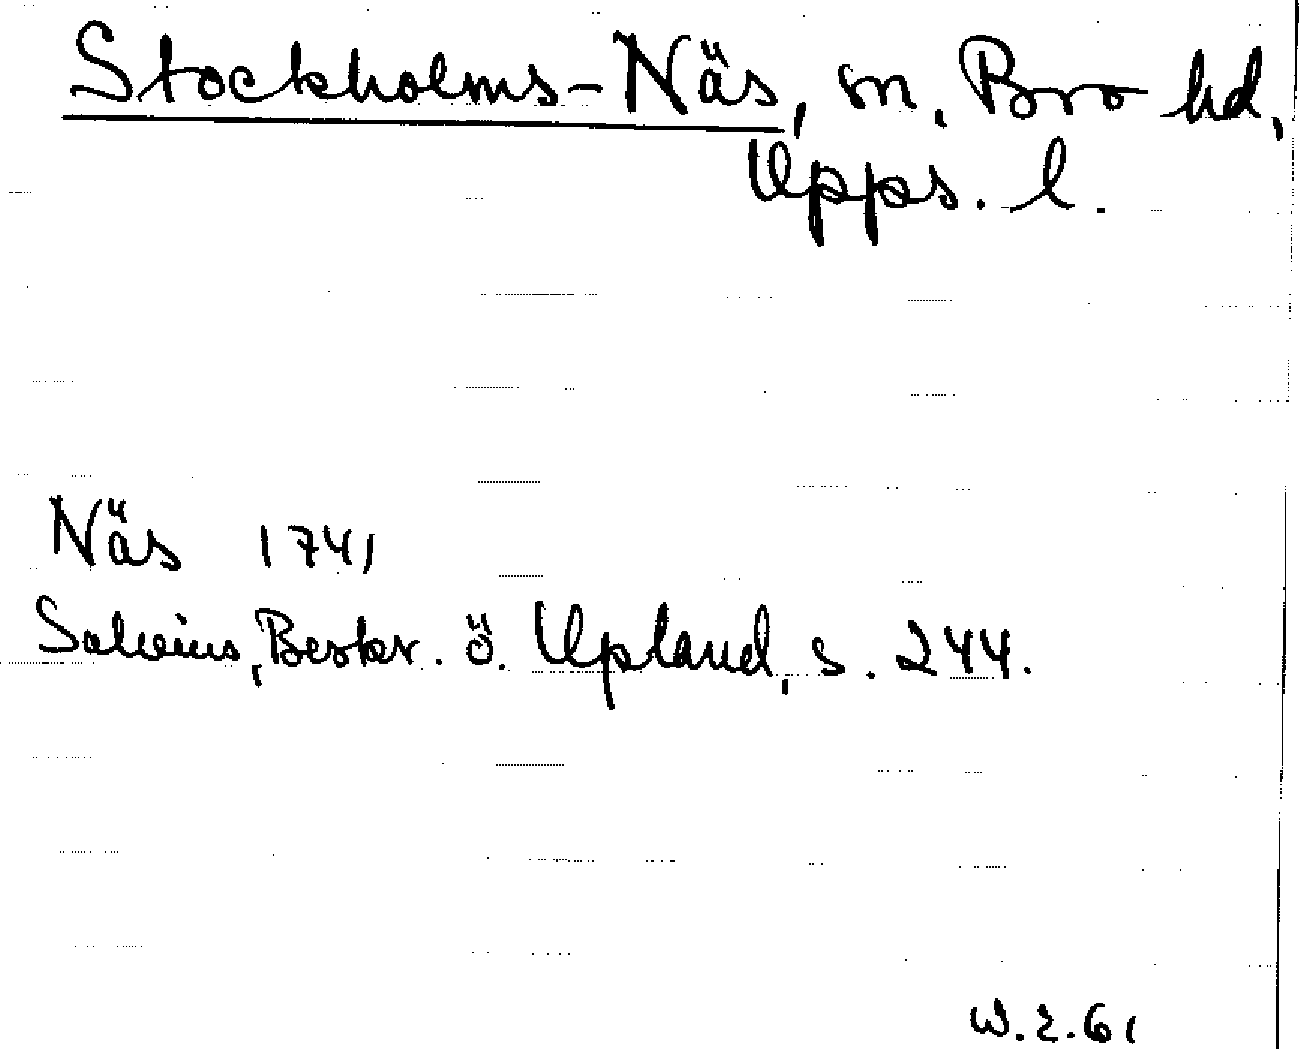 Stockholms-Näs, sn. Bro hd,
Upps. l.
Näs 1741
Salvius, Beskr. ö. Upland, s. 244.
W.E.61